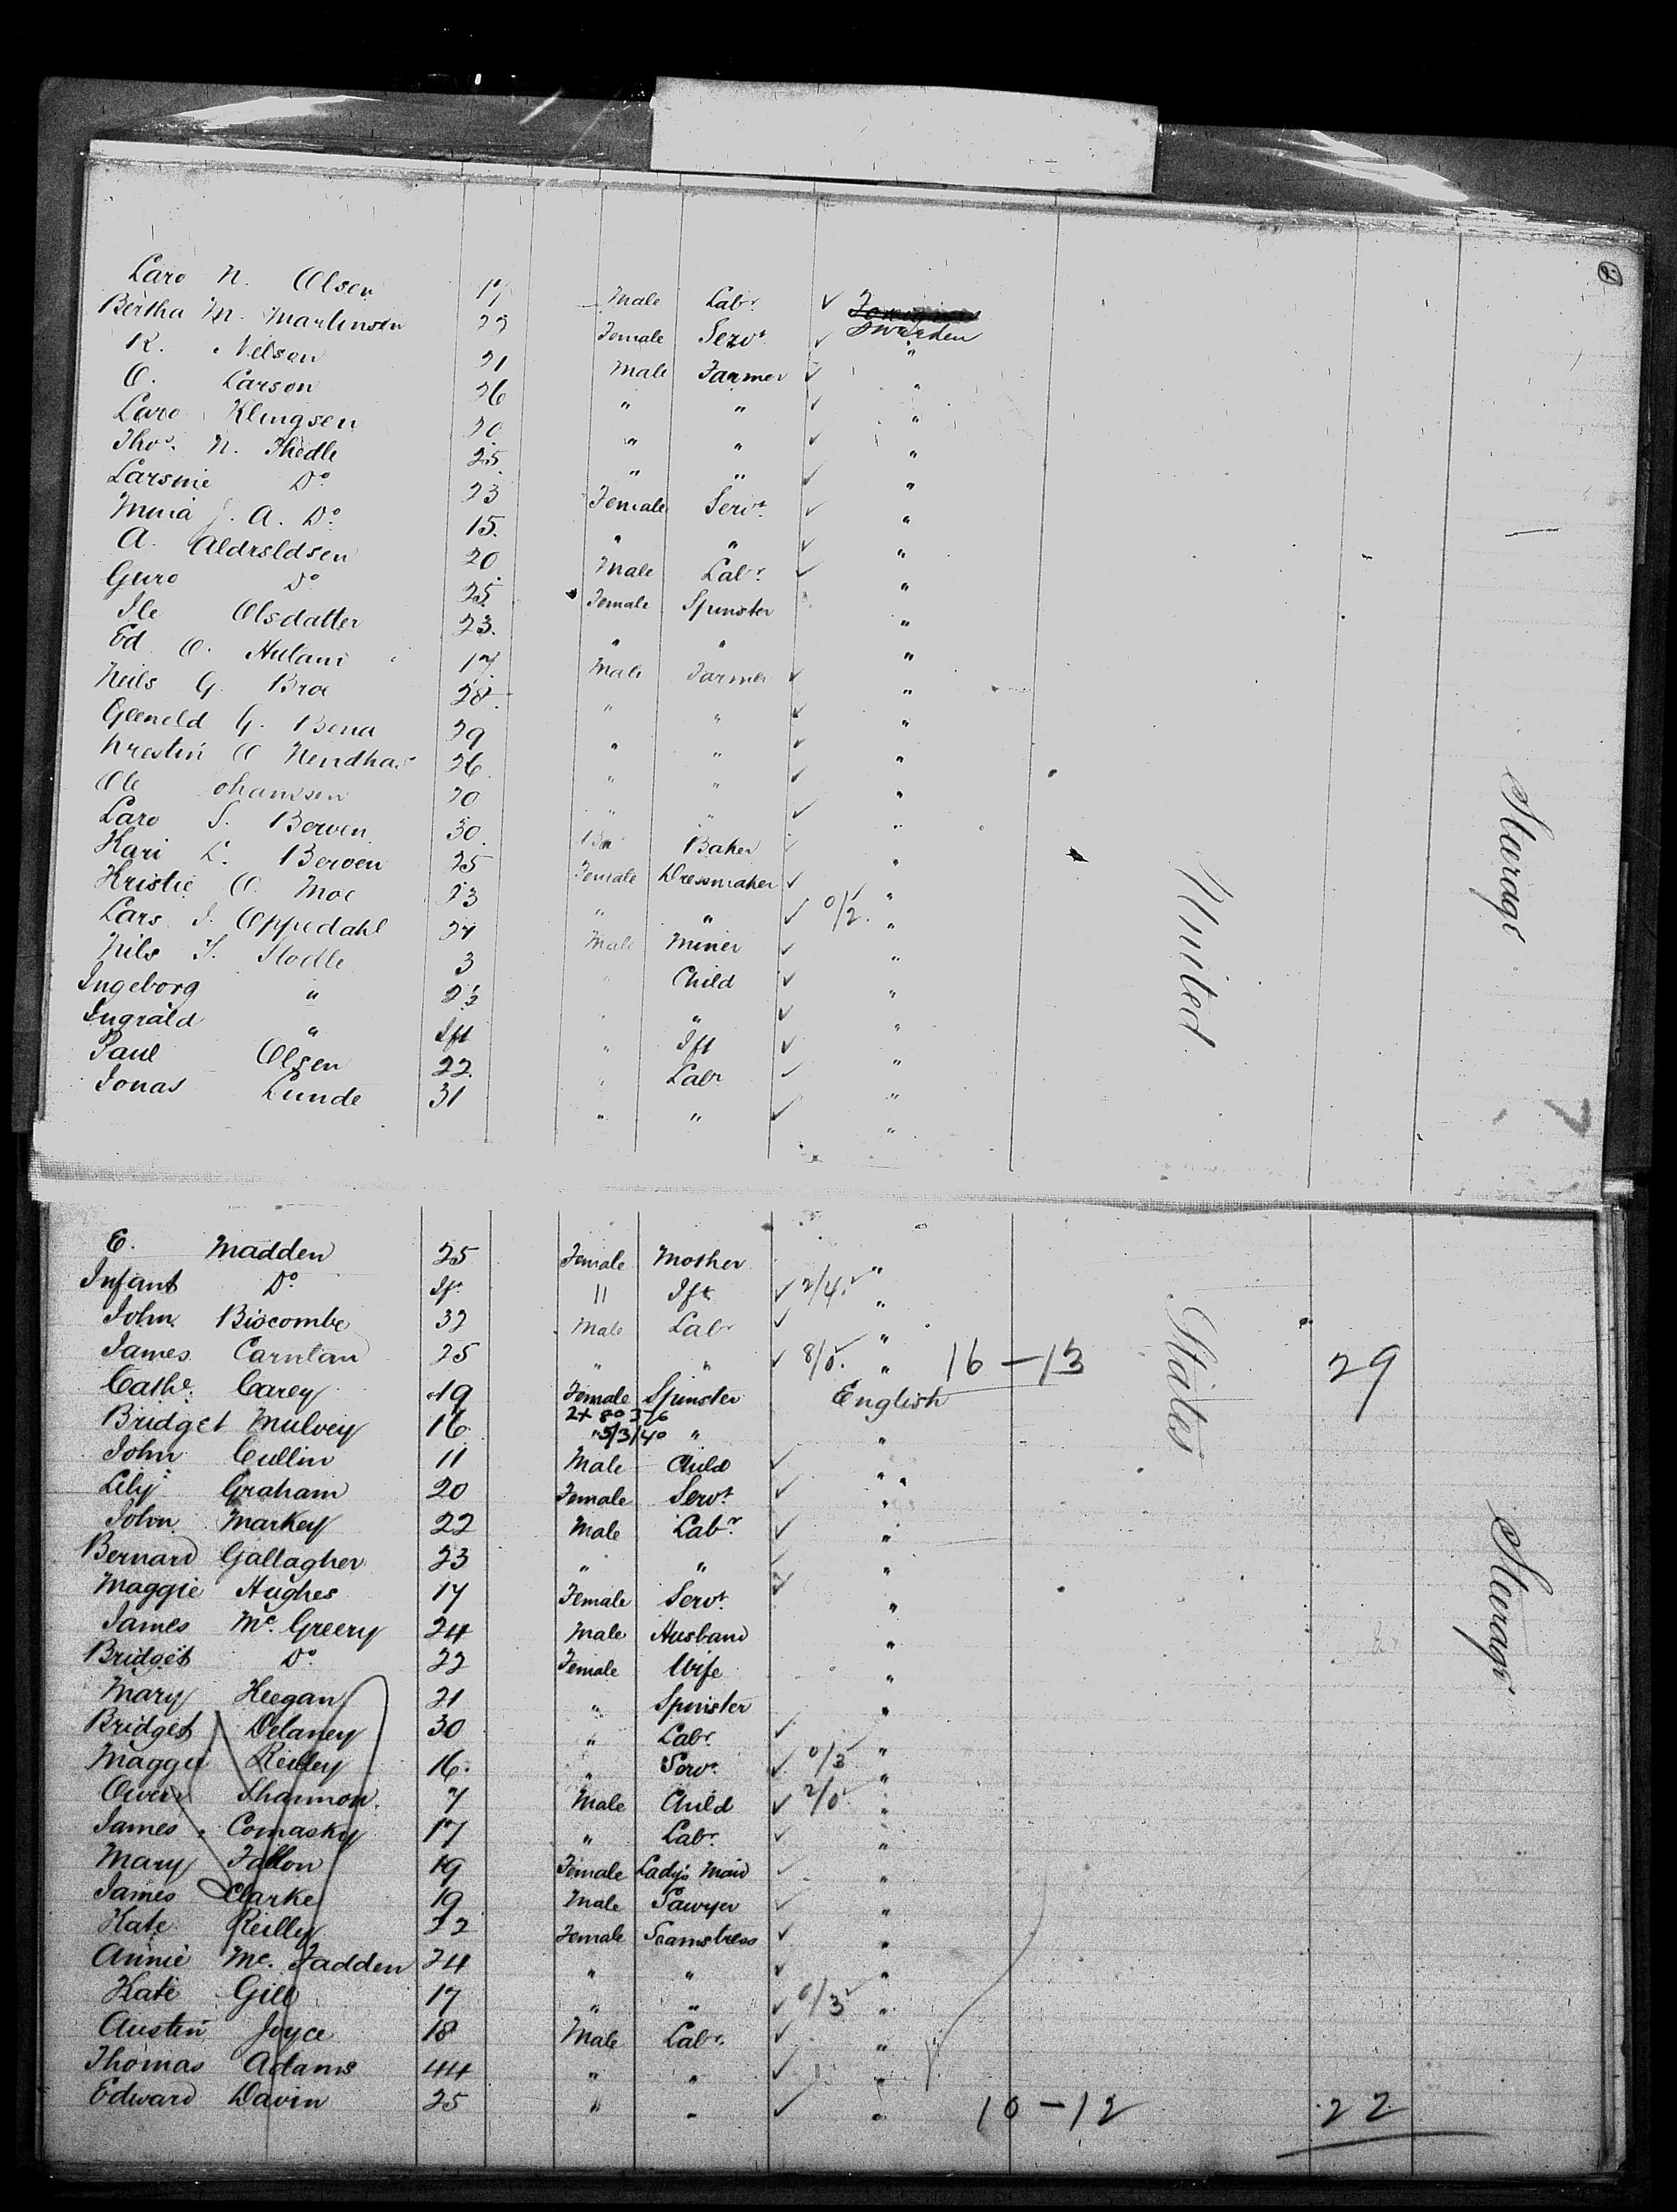 2.
Lars N. Olsen 17 Male Labr. ✓ Sweden
Bertha M. Martinsen 22 Female Servt. ✓ "
R. Nelson 21 Male Farmer ✓ "
O. Larson 26 " " ✓ "
Lars Klingsen 20 " " ✓ "
Thos. N. Thedle 25 " " ✓ "
Larsine Do. 23 Female Servt. ✓ "
J. A. Do. 15 " " ✓ "
A. Aldrsldsen 20 Male Labr. ✓ "
Guro Do 25 Female Spinster "
Ile Olsdatter 23 " " "
Ed O. 17 Male Farmer ✓ "
Neils G. Broe 28 " " ✓ "
G. Bona 29 " " ✓ "
O 26 " " ✓ "
Ole ohanssen 20 " " ✓ "
Lars S. Berven 30 Baker ✓ "
Kari L. Berven 25 Female Dressmaker ✓ "
Kristie O. Moe 23 " " ✓ 0/2. "
Lars J. Oppedahl 24 Male Miner ✓ "
Nils T. Hodle 3 Child ✓ "
Ingeborg " " ✓ "
Ingrald " Ift " Ift ✓ "
Paul Olsen 22 " Labr ✓ "
Jonas Lunde 31 " " ✓ "
United
Steerage
7
E. Madden 25 Female Mother "
Infant Do. If. " Ift ✓ 2/4. "
John Biscombe 32 Male Labr ✓ "
James Carnlan 25 " " ✓ 8/0. " 16 – 13 29
Cathe. Carey 19 Female Spinster English
Bridget Mulvey 16 " "
John Cullin 11 Male Child ✓ "
Lily Graham 20 Female Servt. ✓ "
John Markey 22 Male Labr. ✓ "
Bernard Gallagher 23 " " ✓ "
Maggie Hughes 17 Female Servt. ✓ "
James Mc. Greery 24 Male Husband "
Bridget Do. 22 Female Wife "
Mary Keegan 21 " Spinster "
Bridget Delaney 30 " Labr. ✓ "
Maggie Reilley 16. " Servt. ✓ 0/3 "
Owen Shannon 7 Male Child ✓ 2/0 "
James Comasky 17 " Labr. ✓ "
Mary Fallon 19 Female Lady's Maid ✓ "
James Clarke 19 Male Sawyer ✓ "
Kate Reilly 22 Female Seamstress ✓ "
Annie Mc. Fadden 24 " " ✓ "
Kate Gill 17 " " ✓ 0/3 "
Austin Joyce 18 Male Labr. ✓ "
Thomas Adams 44 " " ✓ "
Edward Davin 25 " " ✓ " 10 – 12 22
States
Steerage